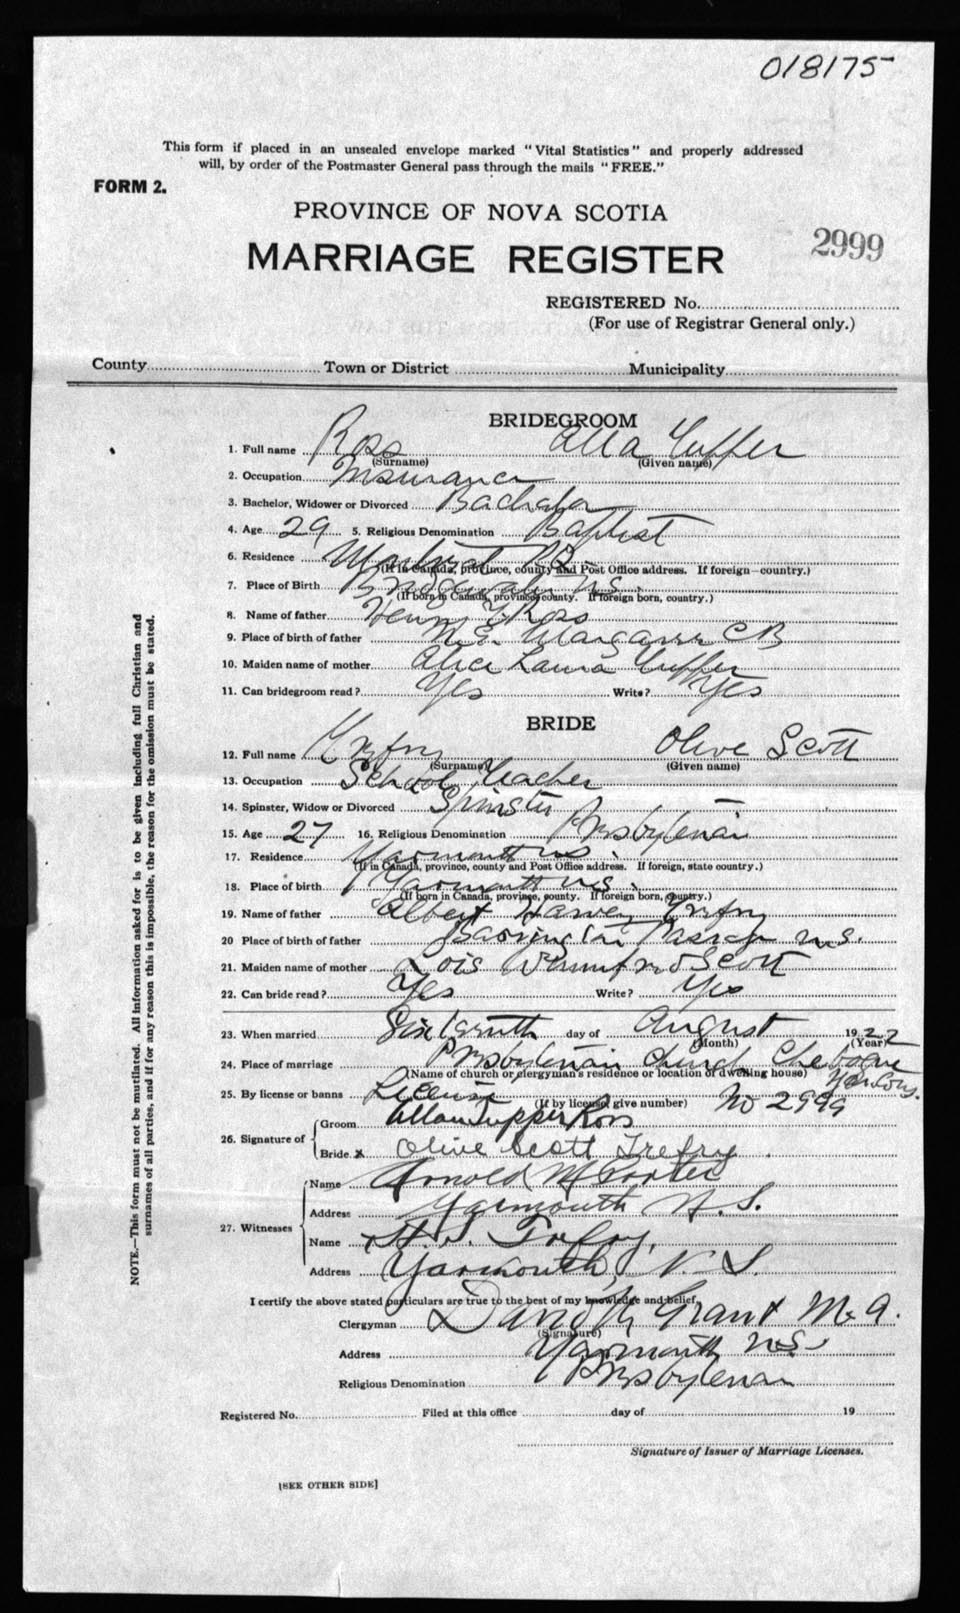 018175
This form if placed in an unsealed envelope marked "Vital Statistics" and properly addressed
will, by order of the Postmaster General pass through the mails "FREE."
FORM 2.
PROVINCE OF NOVA SCOTIA
MARRIAGE REGISTER
2999
REGISTERED No.
(For use of Registrar General only.)
County Town or District Municipality
BRIDEGROOM
1. Full name Ross Tupper
(Surname) (Given name)
2. Occupation Insurance
3. Bachelor, Widower or Divorced Bachelor
4. Age 29 5. Religious Denomination Baptist
6. Residence Montreal P.Q.
(If in Canada, province, county and Post Office address. If foreign—country.)
7. Place of Birth N.S.
(If born in Canada, province, county. If foreign born, country.)
8. Name of father Henry Ross
9. Place of birth of father N.E. Margaree C B
10. Maiden name of mother Alice Laura Tupper
11. Can bridegroom read? Yes Write? Yes
BRIDE
12. Full name Trefry Olive Scott
(Surname) (Given name)
13. Occupation School Teacher
14. Spinster, Widow or Divorced Spinster
15. Age 27 16. Religious Denomination Presbyterian
17. Residence Yarmouth N.S.
(If in Canada, province, county and Post Office address. If foreign, state country.)
18. Place of birth Yarmouth N.S.
(If born in Canada, province, county. If foreign born, country.)
19. Name of father Albert Harvey Trefry
20 Place of birth of father Barrington Passage N.S.
21. Maiden name of mother Lois Scott
22. Can bride read? Yes Write? Yes
23. When married Sixteenth day of August 1922
(Month) (Year)
24. Place of marriage Presbyterian Church Chebogue
(Name of church or clergyman's residence or location of dwelling house) Yar Co.
25. By license or banns License No 2999
(If by license, give number)
26. Signature of
Groom Allan Tupper Ross
Bride x Olive Scott Trefry
27. Witnesses
Name Arnold M Porter
Address Yarmouth N.S.
Name Trefry
Address Yarmouth, N.S.
I certify the above stated particulars are true to the best of my knowledge and belief,
Clergyman Grant M.A.
(Signature)
Address Yarmouth N.S.
Religious Denomination Presbyterian
Registered No. Filed at this office day of 19
Signature of Issuer of Marriage Licenses.
[SEE OTHER SIDE]
NOTE.—This form must not be mutilated. All information asked for is to be given including full Christian and
surnames of all parties, and if for any reason this is impossible, the reason for the omission must be stated.